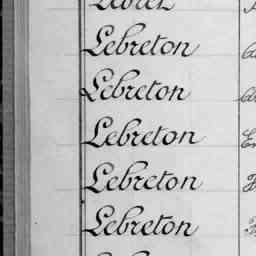 Lebret
Lebreton
Lebreton
Lebreton
Lebreton
Lebreton